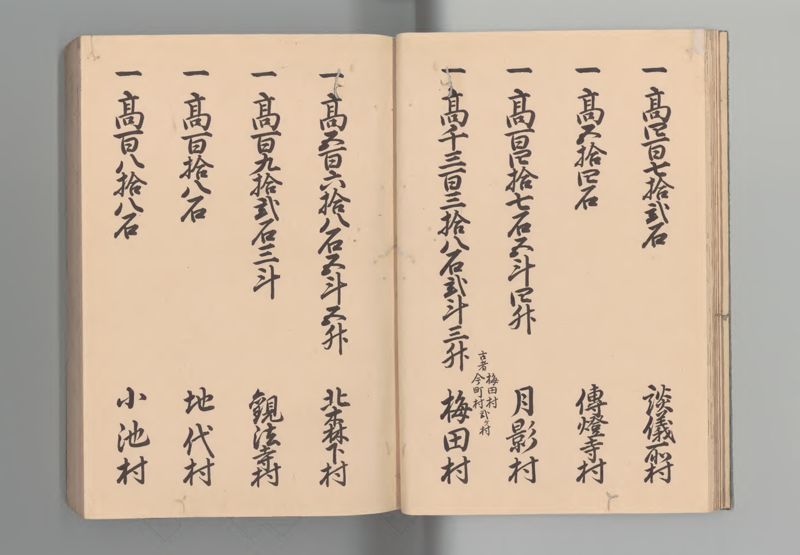 一 高四百七拾弐石 談儀所村
一 高五拾四石 傳燈寺村
一 高百四拾七石五斗四升 月影村
一 高千三百三拾八石弐斗三升 梅田村
古者 梅田村
今町村弐ヶ村
一 高五百六拾八石五斗五升 北森下村
一 高百九拾弐石三斗 観法寺村
一 高百拾八石 地代村
一 高百八拾八石 小池村